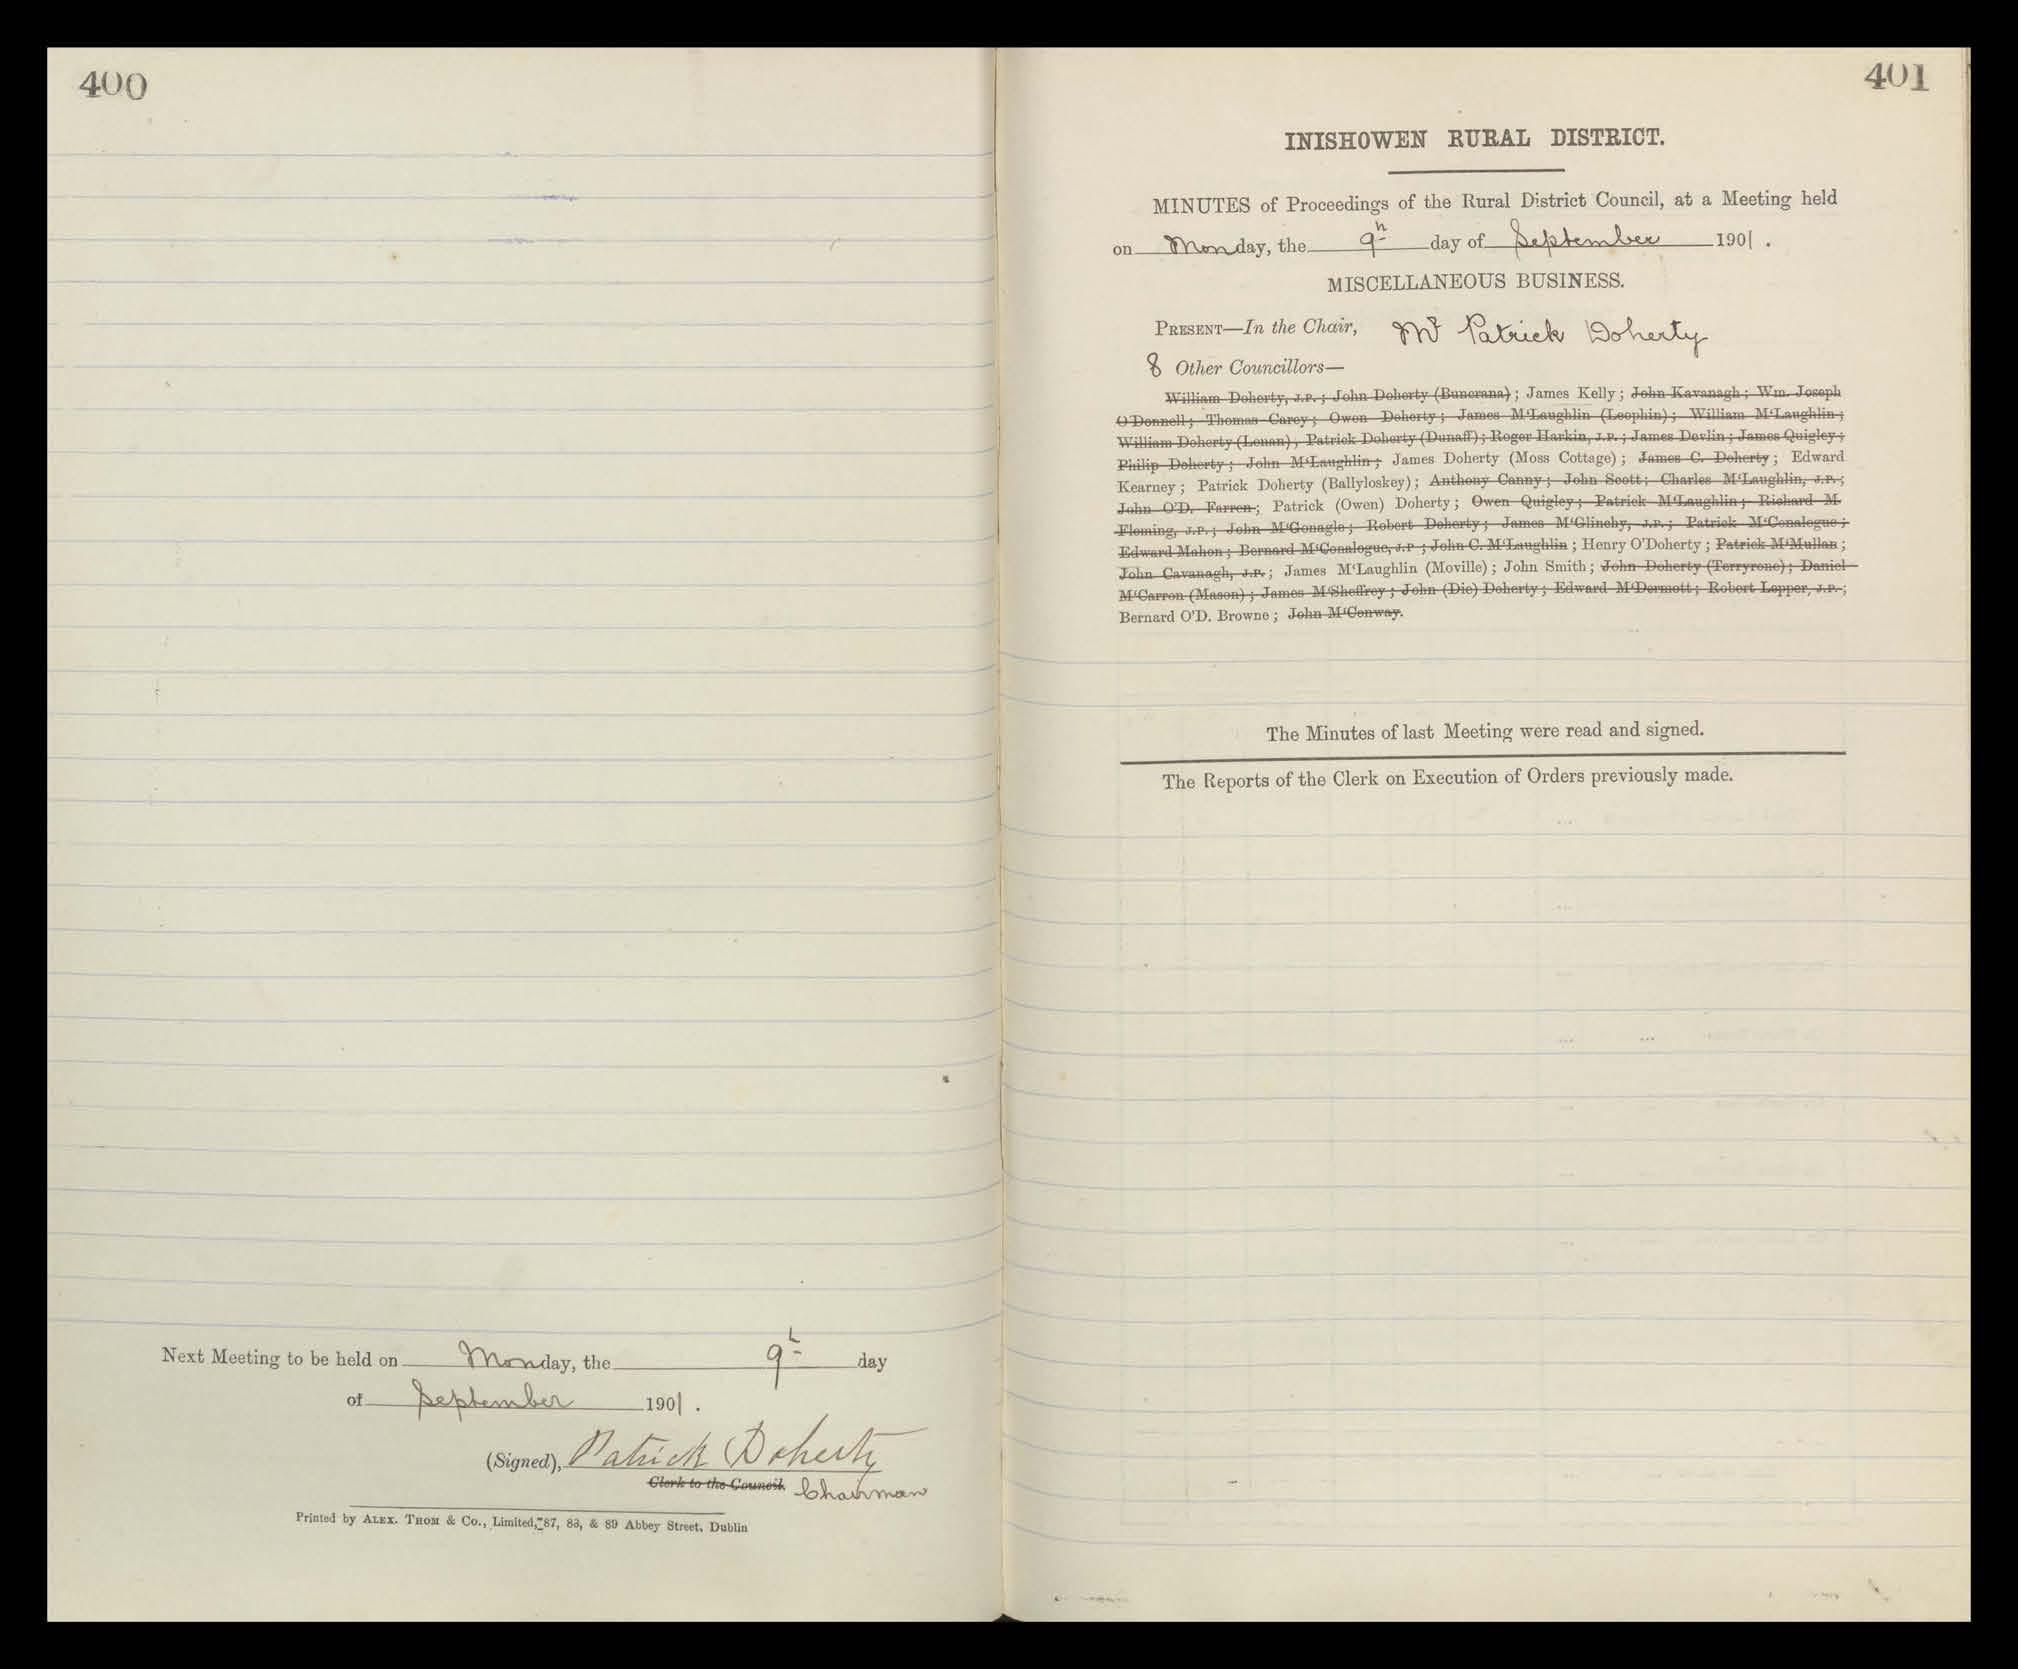 400
Next Meeting to be held on Monday, the 9th day
of September 1901 .
(Signed), Patrick Doherty
Clerk to the Council. Chairman
Printed by ALEX. THOM & Co., Limited, 87, 88, & 89 Abbey Street, Dublin
401
INISHOWEN RURAL DISTRICT.
MINUTES of Proceedings of the Rural District Council, at a Meeting held
on Monday, the 9th day of September 1901 .
MISCELLANEOUS BUSINESS.
PRESENT—In the Chair, Mr Patrick Doherty
8 Other Councillors—
William Doherty, J.P. ; John Doherty (Buncrana) ; James Kelly ; John Kavanagh ; Wm. Joseph
O'Donnell ; Thomas Carey ; Owen Doherty ; James M'Laughlin (Leophin) ; William M'Laughlin ;
William Doherty (Lenan) ; Patrick Doherty (Dunaff) ; Roger Harkin, J.P. ; James Devlin ; James Quigley ;
Philip Doherty ; John M'Laughlin ; James Doherty (Moss Cottage) ; James C. Doherty ; Edward
Kearney ; Patrick Doherty (Ballyloskey) ; Anthony Canny ; John Scott ; Charles M'Laughlin, J.P. ;
John O'D. Farren ; Patrick (Owen) Doherty ; Owen Quigley ; Patrick M'Laughlin ; Richard M.
Fleming, J.P. ; John M'Gonagle ; Robert Doherty ; James M'Glinchy, J.P. ; Patrick M'Conalogue ;
Edward Mahon ; Bernard M'Conalogue, J.P ; John C. M'Laughlin ; Henry O'Doherty ; Patrick M'Mullan ;
John Cavanagh, J.P. ; James M'Laughlin (Moville) ; John Smith ; John Doherty (Terryrone) ; Daniel
M'Carron (Mason) ; James M'Sheffrey ; John (Die) Doherty ; Edward M'Dermott ; Robert Lepper, J.P. ;
Bernard O'D. Browne ; John M'Conway.
The Minutes of last Meeting were read and signed.
The Reports of the Clerk on Execution of Orders previously made.